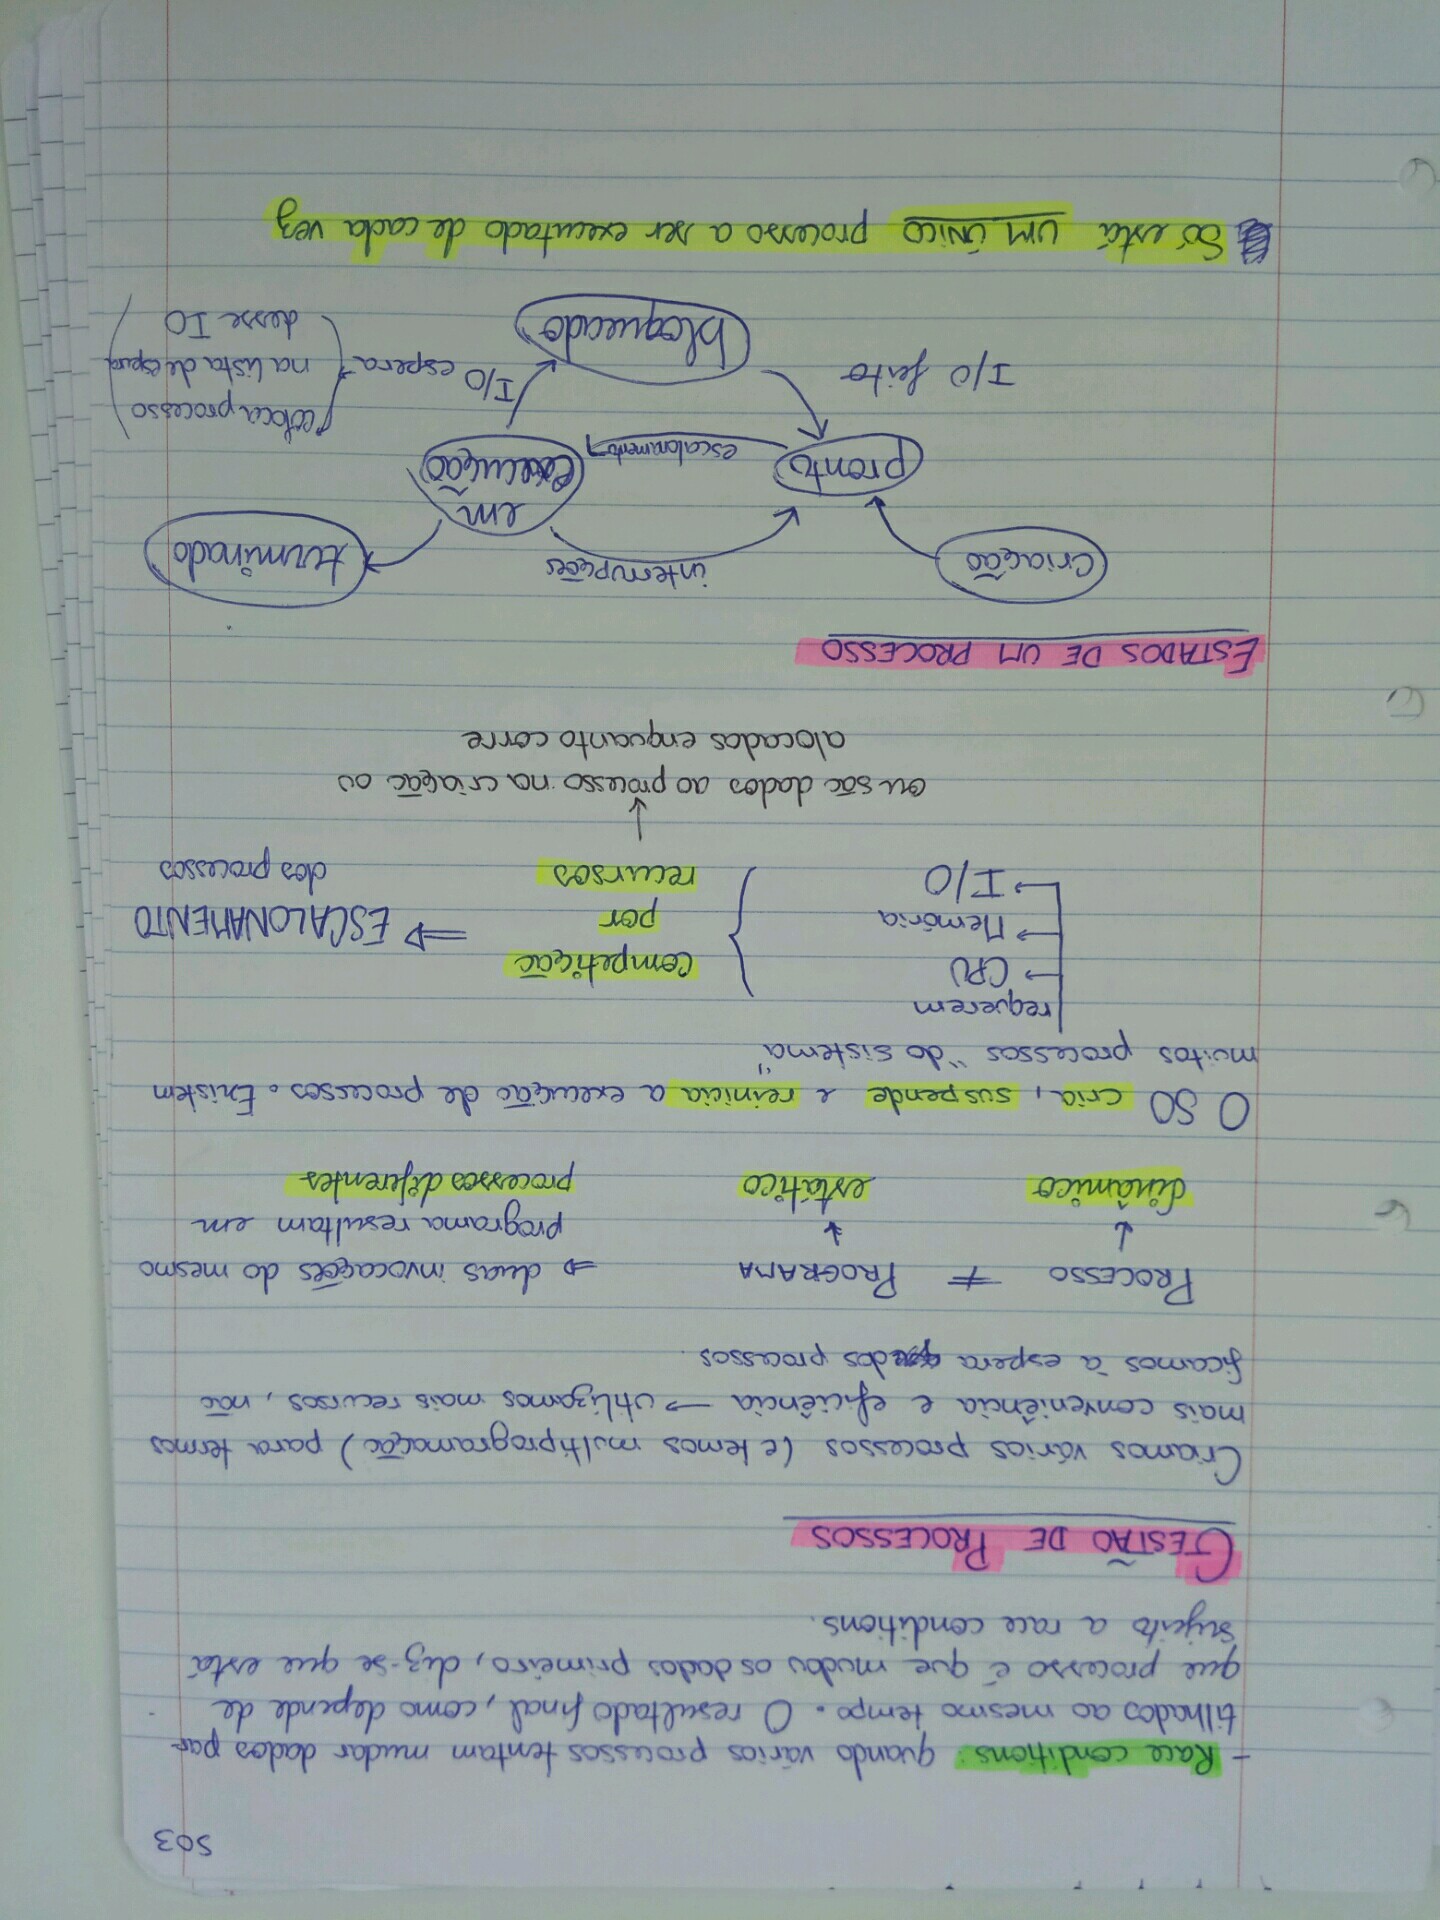 SO3
- Race conditions: quando vários processos tentam mudar dados par-
tilhados ao mesmo tempo. O resultado final, como depende de
que processo é que mudou os dados primeiro, diz-se que está
sujeito a race conditions.
GESTÃO DE PROCESSOS
Criamos vários processos (e temos multiprogramação) para termos
mais conveniência e eficiência → utilizamos mais recursos, não
ficamos à espera dos processos.
PROCESSO ≠ PROGRAMA ⇒ duas invocações do mesmo
↓ ↓ programa resultam em
dinâmico estático processos diferentes
O SO cria, suspende e reinicia a execução de processos. Existem
muitos processos "do sistema"
requerem
→ CPU
→ Memória
→ I/O
competição
por
recursos
⇒ ESCALONAMENTO
dos processos
↓
ou são dados ao processo na criação ou
alocados enquanto corre
ESTADOS DE UM PROCESSO
criação
interrupções
terminado
em
execução
pronto
escalonamento
I/O feito
I/O espera →
coloca processo
na lista de espera
desse IO
bloqueado
Só está UM ÚNICO processo a ser executado de cada vez